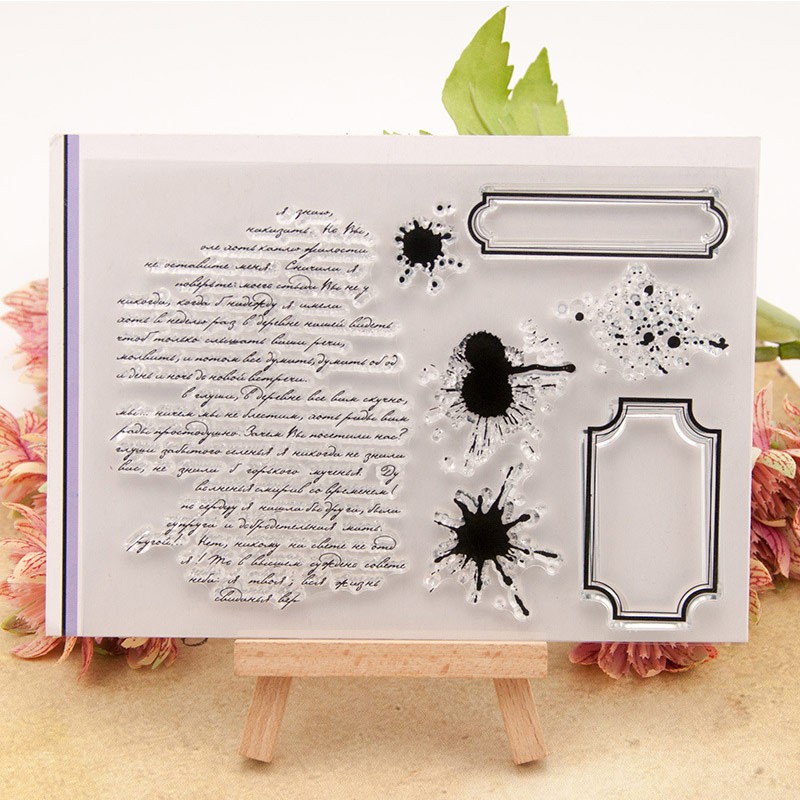 Я знаю,
наказать. Но Вы,
оле хоть каплю жалости
не оставите меня. Сначала я
поверьте: моего стыда Вы не у
никогда, когда б надежду я имела
хоть в неделю раз в деревне нашей видеть
чтоб только слышать ваши речи,
молвить, и потом все думить, думить об од
и день и ночь до новой встречи.
в глуши, в деревне все вам скучно,
мы... ничем мы не блестим, хоть рады вам
рады простодушно. Зачем Вы посетили нас?
глуши забытого селенья я никогда не знала
вас, не знала б горького мученья. Ду
волненья смирив со временем!
по сердцу я нашла бы друга, была
супруга и добродетельная мать.
Другой! Нет, никому на свете не отд
я! То в вышнем суждено совете
неба: я твоя; вся жизнь
свиданья вер